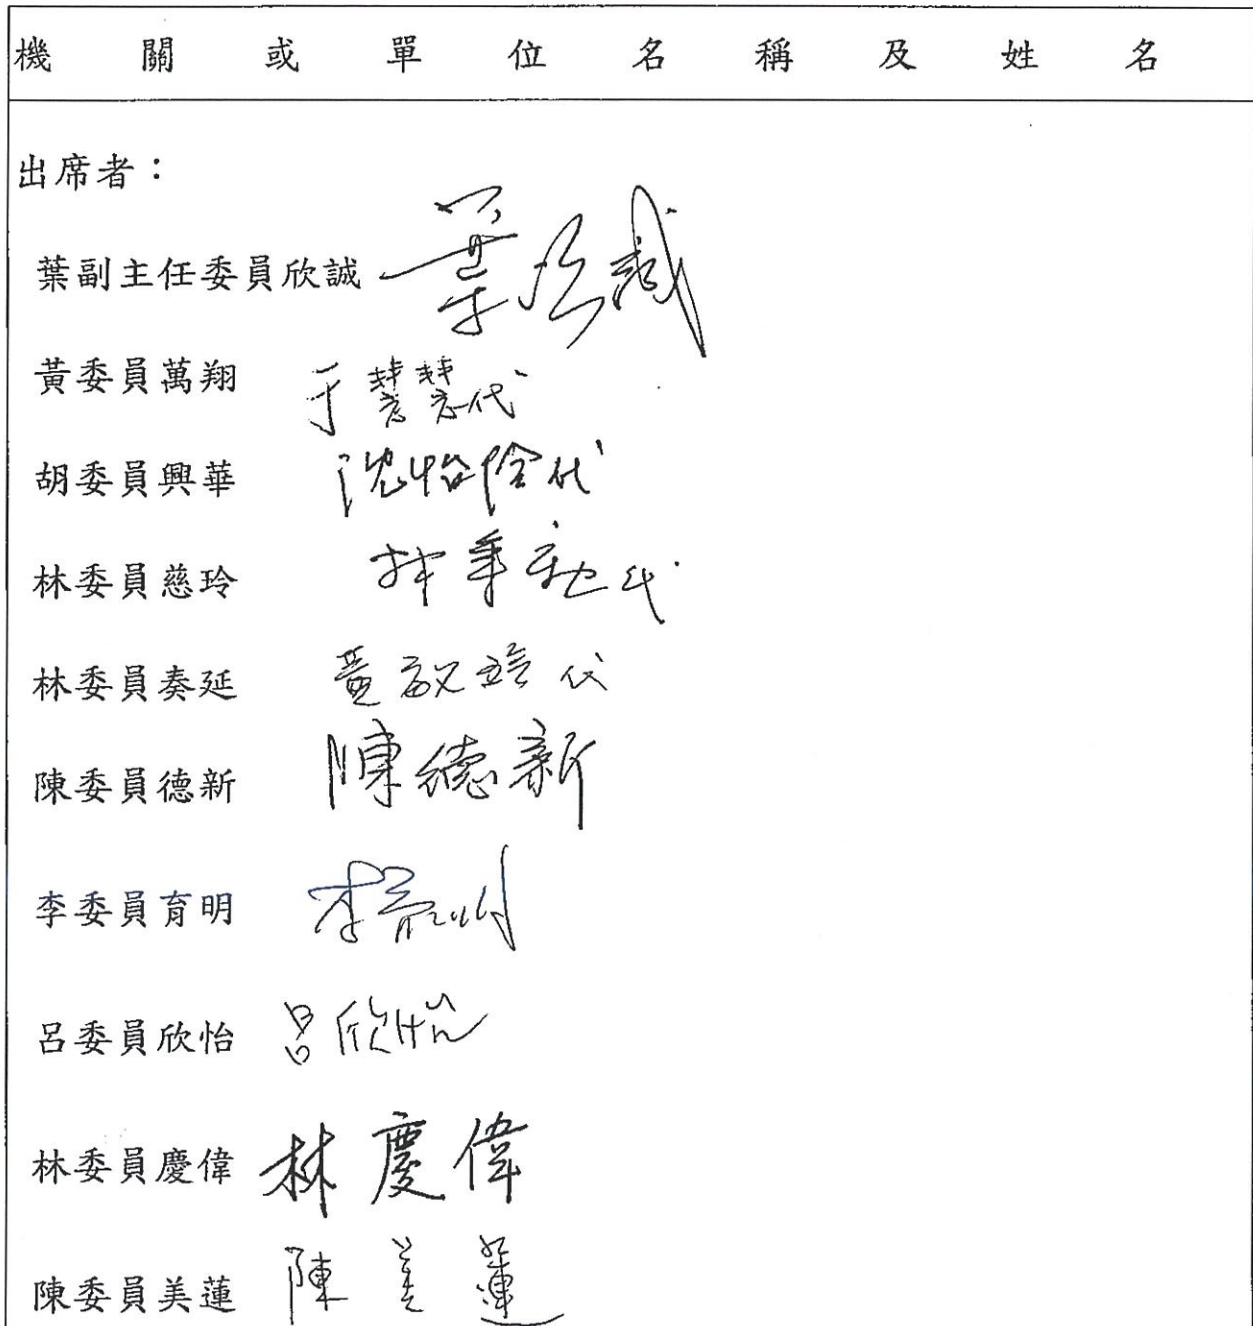 機關或單位名稱及姓名
出席者：
葉副主任委員欣誠 葉欣誠
黃委員萬翔 于慧慧代
胡委員興華 沈怡伶代
林委員慈玲 代
林委員奏延 黃 代
陳委員德新 陳德新
李委員育明 李育明
呂委員欣怡 呂欣怡
林委員慶偉 林慶偉
陳委員美蓮 陳美蓮